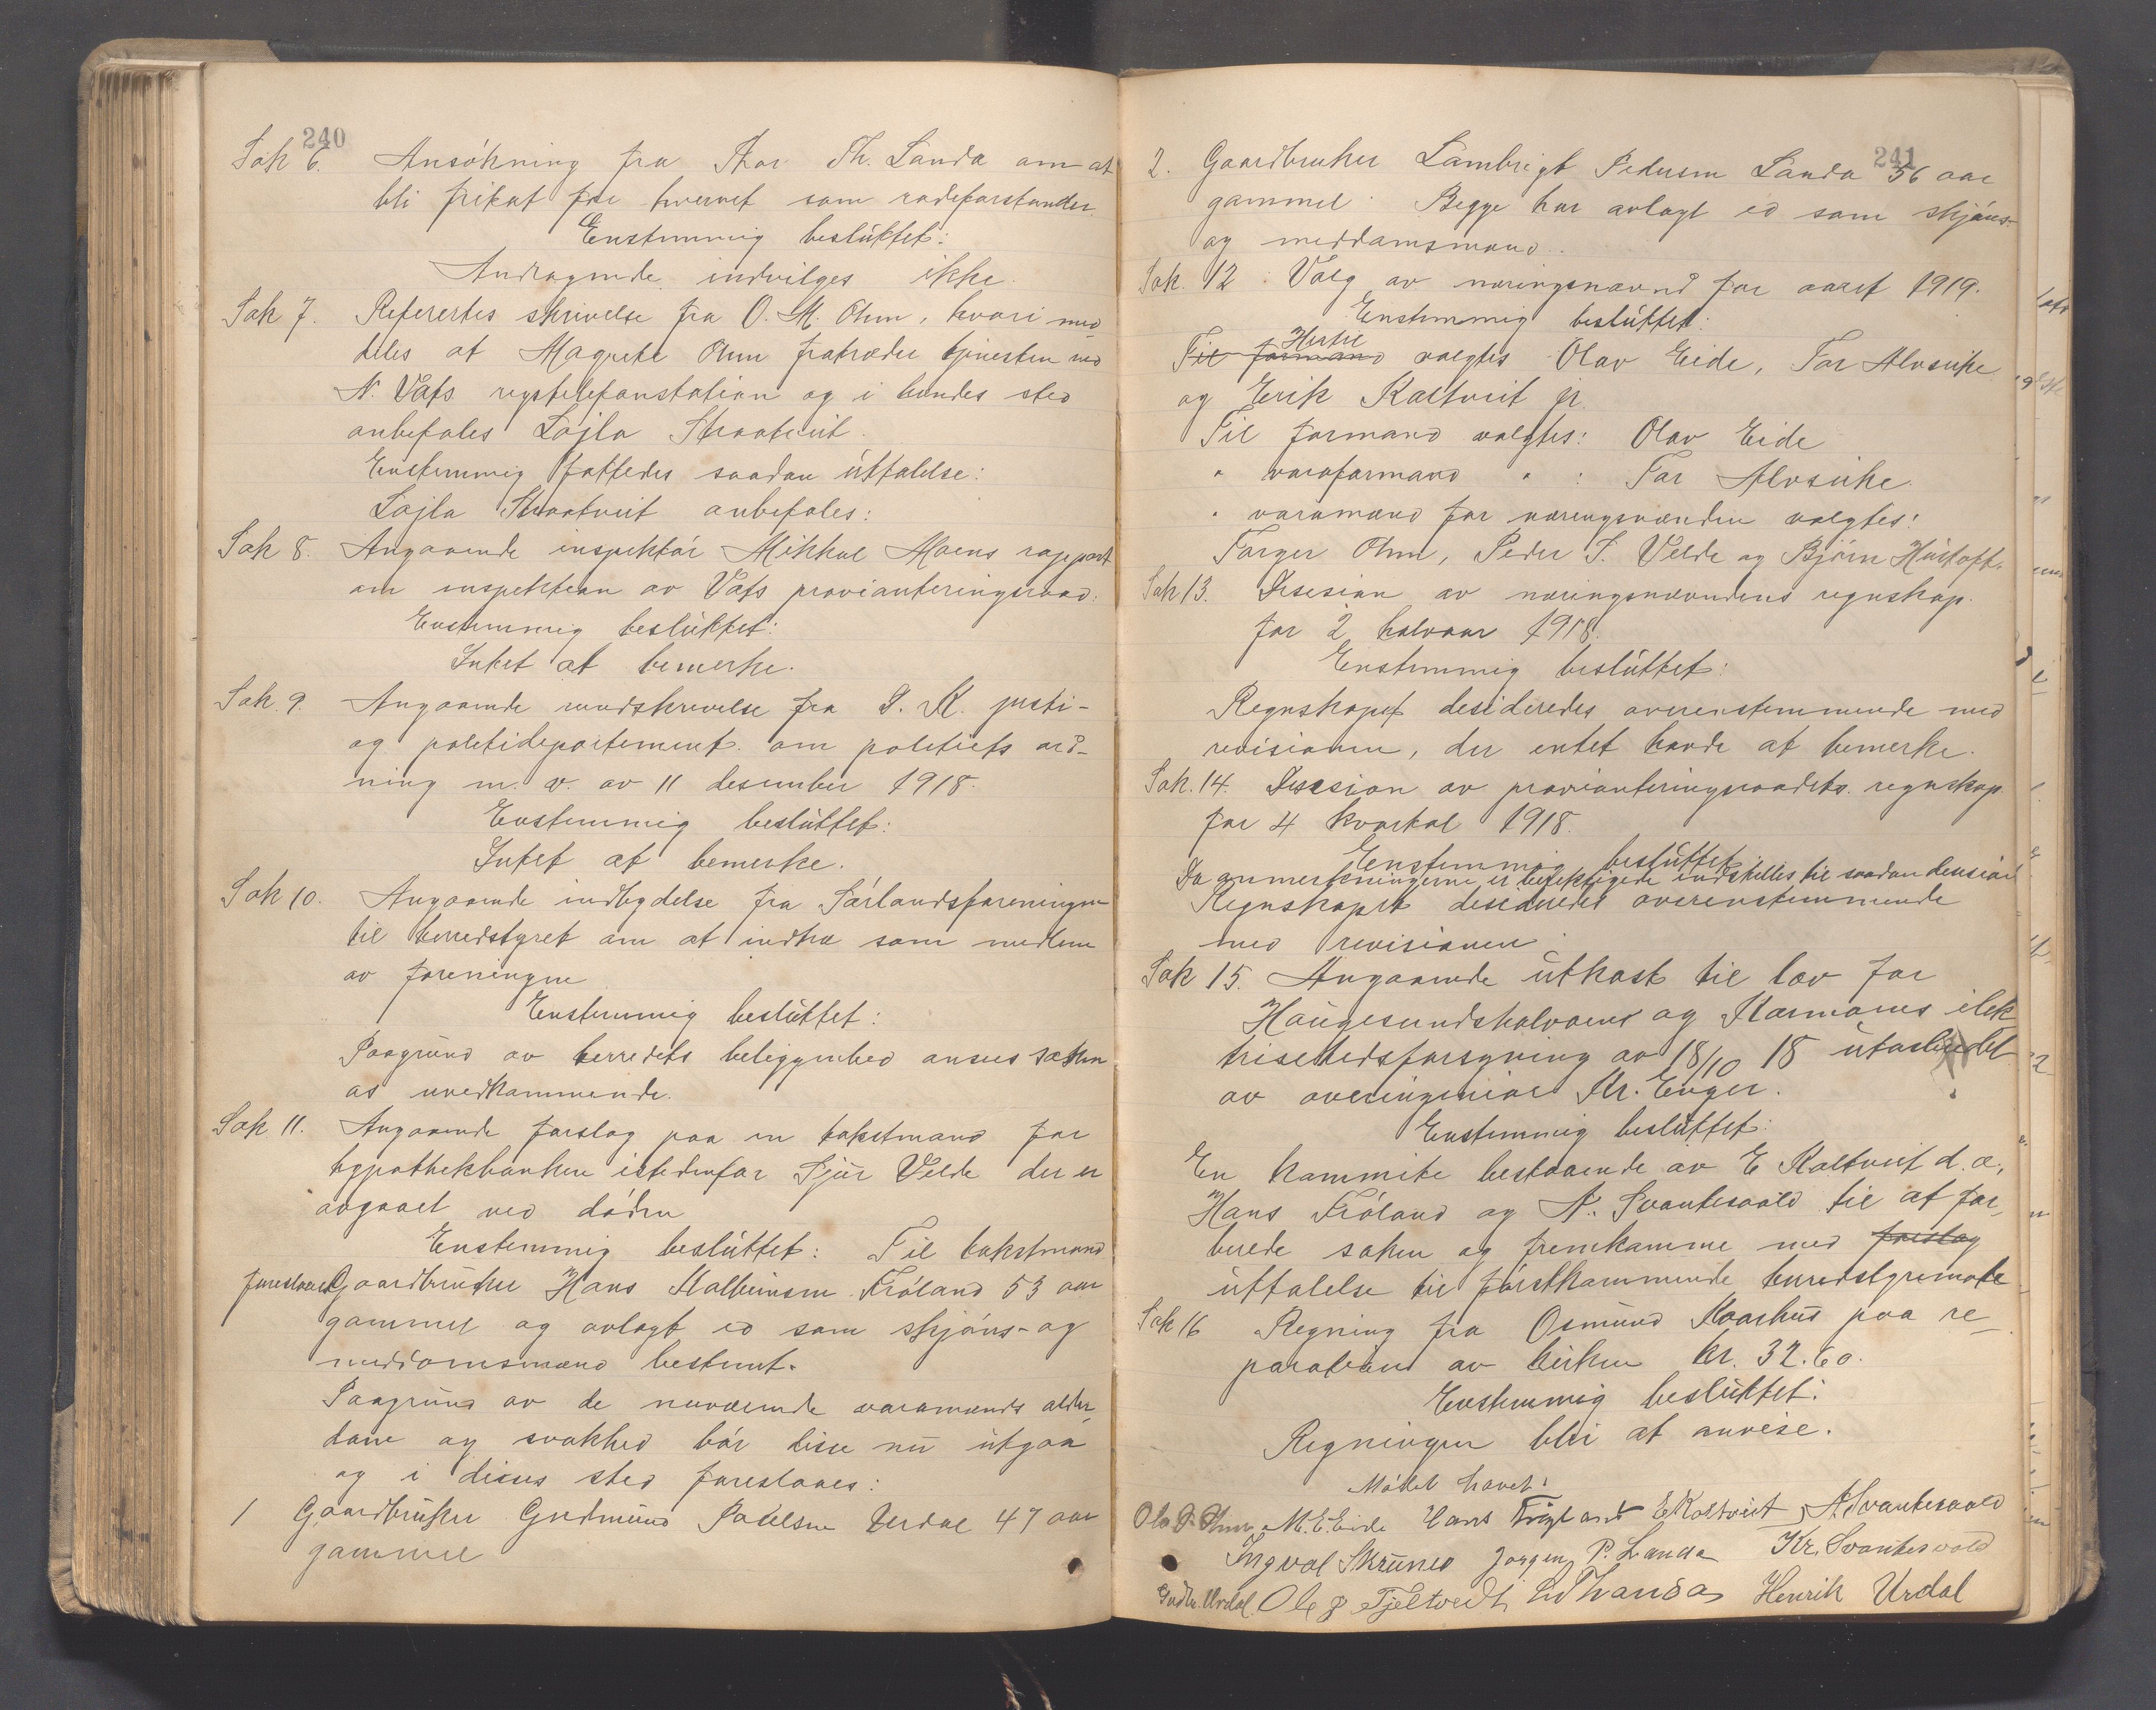 240
Sak 6. Ansökning fra Thor Th. Landa om at
bli fritat for hvervet som rodeforstander.
Enstemmig besluttet:
Andragende indvilges ikke.
Sak 7. Refertes skrivelse fra O. M. Ohm, hvori med
deles at Magrete Ohm fratræder tjenesten ved
N. Vats rigstelefonstation og i hendes sted
anbefales Lajla Straatveit.
Enstemmig fattedes saadan uttalelse:
Lajla Straatveit anbefales:
Sak 8. Angaaende inspektör Mikkal Moens rapport
om inspektion av Vats provianteringsraad.
Enstemmig besluttet:
Intet at bemerke.
Sak 9. Angaaende rundskrivelse fra D. K. justi-
og politidepartement. om politiets ord-
ning m. v. av 11 desember 1918.
Enstemmig besluttet:
Intet at bemerke.
Sak 10. Angaaende indbydelse fra Sörlandsforeningen
til herredstyret om at indtræ som medlem
av foreningen
Enstemmig besluttet:
Paagrund av herredets beliggenhed ansees saken
os uvedkommende.
Sak 11. Angaaende forslag paa en takstmand for
hypothekbanken istedenfor Sjur Velde der er
avgaaet ved döden
Enstemmig besluttet: Til takstmand
foreslaaes Gaardbruker Hans Kolbeinsen Fröland 53 aar
gammel og avlagt ed som skjöns- og
meddomsmand bestemt.
Paagrund av de nuværende varamænds alder-
dom og svakhed bör disse nu utgaa
og i disses sted foreslaaes:
1 Gaardbruker Gudmund Paulsen Urdal 47 aar
gammel
241
2. Gaardbruker Lambrigt Pedersen Landa 56 aar
gammel. Begge har avlagt ed som skjöns-
og meddomsmand.
Sak. 12. Valg av næringsnævnd for aaret 1919.
Enstemmig besluttet:
Hertil
Til formand valgtes Olav Eide, Tor Alvseike
og Erik Kaltveit jr.
Til formand valgtes: Olav Eide
" varaformand " : Tor Alvseike.
" varamænd for næringsnævnden valgtes:
Torger Ohm, Peder S. Velde og Björn Hustoft.
Sak 13. Desesion av næringsnævndens regnskap.
for 2 halvaar 1918.
Enstemmig besluttet:
Regnskapet desideredes overenstemmende med
revisionen, der intet havde at bemerke.
Sak. 14. Desesion av provianteringsraadets regnskap
for 4 kvartal 1918.
Enstemmig besluttet
Da anmerkningerne er befektigede indstilles til saadan desision
Regnskapet desideredes overenstemmende
med revisionen.
Sak 15. Angaaende utkast til lov for
Haugesundshalvøens og Karmøens elek
trisitetsforsyning av 18/10 18 utarbeidet
av overingeniør Kr. Enger.
Enstemmig besluttet:
En kommite bestaaende av E Kaltveit d. æ.,
Hans Fröland og A. Svantesvold til at for-
berede saken og fremkomme med forslag
uttalelse til förstkommende herredstyremöte
Sak 16 Regning fra Osmund Kaarhus paa re-
paration av kirken kr. 32.60.
Enstemmig besluttet:
Regningen blir at anvise.
Mödet hævet:
Ola O. Ohm, M. E. Eide Hans Fröland E Kaltveit, A Svantesvold
Ingval Skrunes Jorgen P. Landa Kr. Svantesvold
Gudm. Urdal. Ole G Fjeltvedt Henrik Urdal